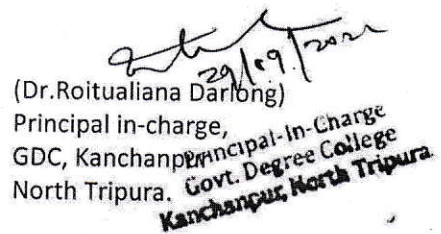 29/09/2022
(Dr.Roitualiana Darlong)
Principal in-charge,
GDC, Kanchanpur
North Tripura.
Principal-In-Charge
Govt. Degree College
Kanchanpur, North Tripura